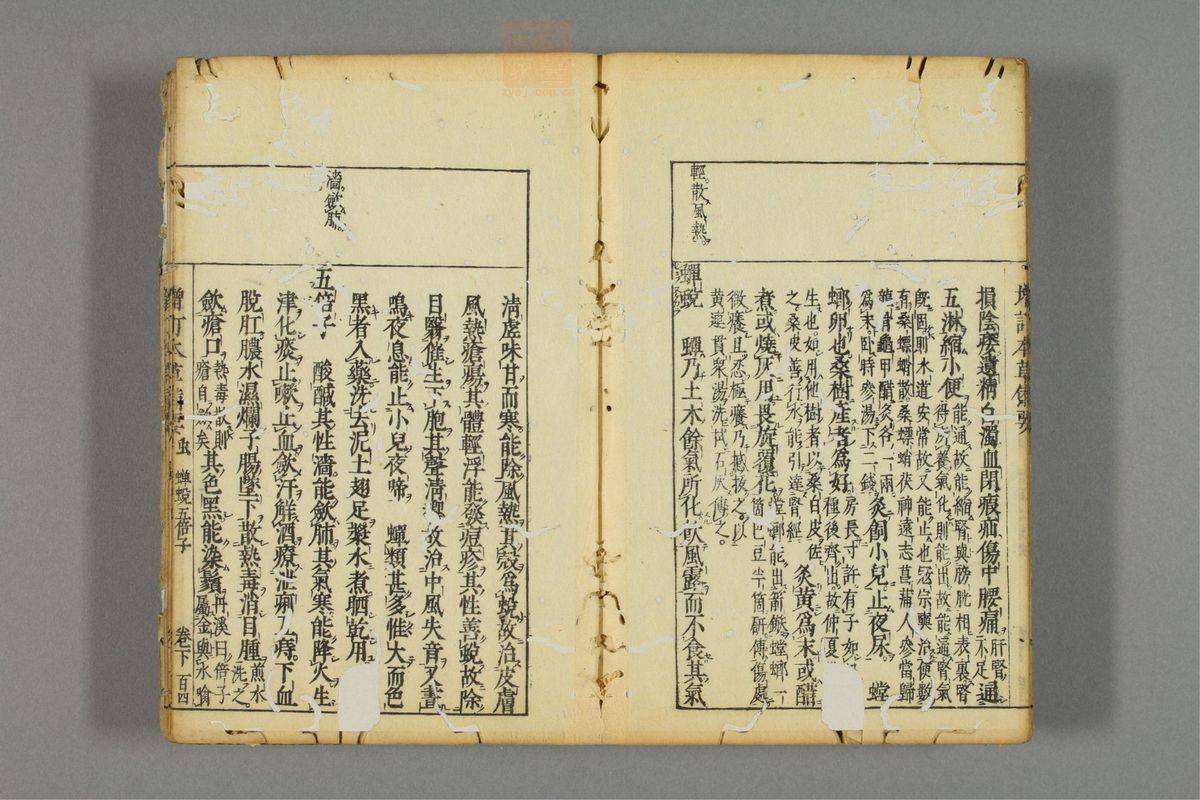 增訂本草備要
損陰痿遺精白濁血閉瘕疝傷中腰痛肝腎不足通
五淋縮小便能通故能縮腎與膀胱相表裏腎
得所養氣化則能出故能通腎氣
既固則水道安常故又能止也寇宗奭治便數
有桑螵蛸散桑螵蛸茯神遠志菖蒲人參當歸
龍骨龜甲醋炙各一兩
為末卧時參湯下二錢炙飼小兒止夜尿螳
螂卵也桑樹產者為好房長寸許有子如
種後齊出故仲夏
生也如用他樹者以桑白皮佐
之桑皮善行水能引達腎經炙黃為末或醋
煮或燒灰用畏旋覆花螳螂能出箭鏃螳螂一
箇巴豆半箇研傅傷處
微癢且忍極癢乃撼拔之以
黃連貫眾湯洗拭石灰傅之
輕散風熱
蟬蛻 蟬乃土木餘氣所化飲風露而不食其氣
清虛味甘而寒能除風熱其殼為蛻故治皮膚
風熱瘡瘍其體輕浮能發痘疹其性善蛻故除
目翳催生下胞其聲清響故治中風失音又晝
鳴夜息能止小兒夜啼 蟬類甚多惟大而色
黑者入藥洗去泥土翅足漿水煮晒乾用
澀歛肺
五倍子 酸鹹其性澀能歛肺其氣寒能降火生
津化痰止嗽止血歛汗解酒療泄痢五痔下血
脫肛膿水濕爛子腸墜下散熱毒消目腫煎水
洗之
歛瘡口熱毒散則
瘡自歛矣其色黑能染鬚丹溪曰倍子
屬金與水噙
增訂本草備要 虫 蟬蛻五倍子 卷下 百四